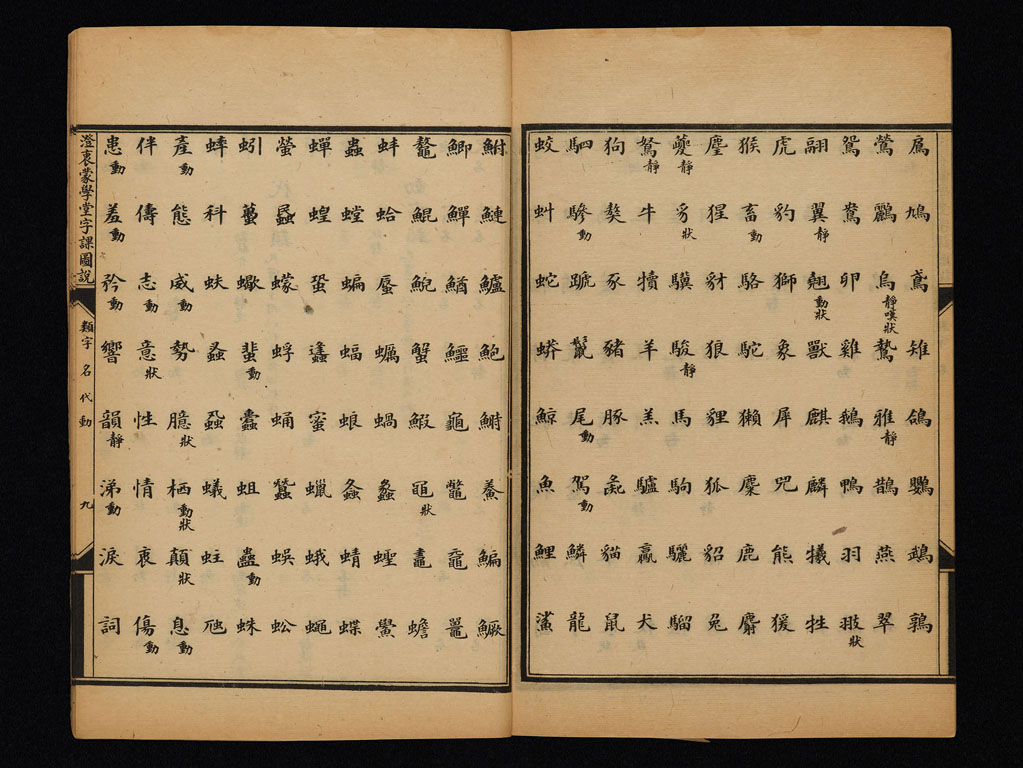 鳩 鳶 雉 鴿 鸚 鵡 鶉
鶯 鸝 烏靜嘆狀 鷙 雅靜 鵲 燕 翠
鴛 鴦 卵 雞 鵝 鴨 羽 狀
翮 翼靜 翹動狀 獸 麒 麟 犧 牲
虎 豹 獅 象 犀 兕 熊 猨
猴 畜動 駱 駝 獺 麋 鹿 麝
麞 猩 豺 狼 貍 狐 貂 兔
夔靜 豸狀 驥 駿靜 馬 駒 驪 騮
駑靜 牛 犢 羊 羔 驢 驘 犬
狗 獒 豕 豬 豚 彘 貓 鼠
駟 驂動 蹏 鬣 尾動 駕動 鱗 龍
蛟 虯 蛇 蟒 鯨 魚 鯉 鯊
鮒 鰱 鱸 鮑 鯗 鯿 鱖
鯽 鱓 鰌 鱷 龜 鼈 黿 鼉
鼇 鯤 鯢 蟹 鰕 黽狀 鼃 蟾
蚌 蛤 蜃 蠣 蝸 蠡 蟶 鱟
蟲 螳 蝙 蝠 蜋 螽 蜻 蝶
蟬 蝗 蛩 蠭 蜜 蠟 蛾 蠅
螢 蟁 蠓 蜉 蛹 蠶 蜈 蚣
蚓 蠆 蠍 蜚動 蠹 蛆 蠱動 蛛
蟀 科 蚨 蟻 蛀 虺
產動 態 威動 勢 臆狀 栖動狀 顛狀 息動
伴 儔 志動 意狀 性 情 衷 傷動
患動 羞動 矜動 響 韻靜 涕動 淚 詞
澄衷蒙學堂字課圖說 類字 名代動 九